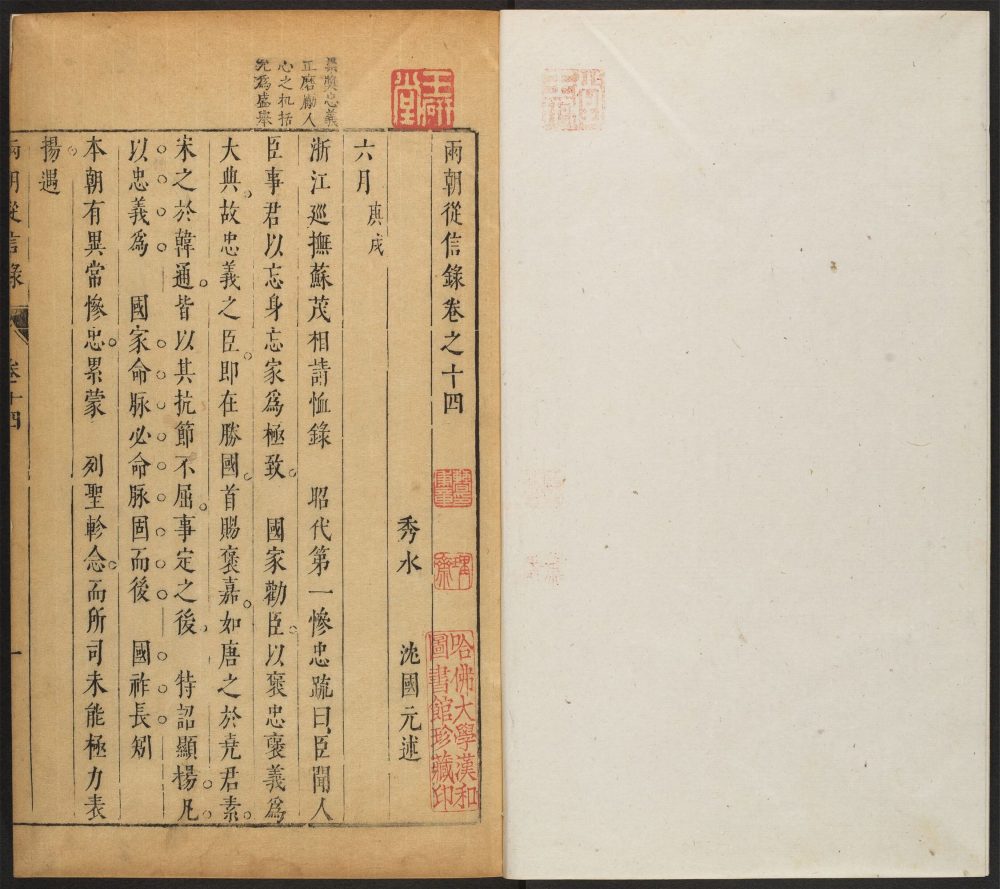 兩朝從信錄卷之十四
秀水 沈國元述
六月庚戌
浙江巡撫蘇茂相請恤錄 昭代第一慘忠疏曰臣聞人
臣事君以忘身忘家爲極致 國家勸臣以褒忠褒義爲
大典故忠義之臣即在勝國首賜褒嘉如唐之於堯君素
宋之於韓通皆以其抗節不屈事定之後 特詔顯揚凡
以忠義爲 國家命脉必命脉固而後 國祚長矧
本朝有異常慘忠累蒙 列聖軫念而所司未能極力表
揚遇
兩朝從信錄 卷十四 一
奬忠義
正磨勵人
心之机括
允爲盛舉
哈佛大學漢和
圖書館珍藏印